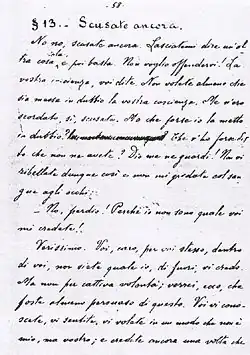 - 58 -
§ 13. - Scusate ancora.
No no, scusate ancora. Lasciatemi dire un'al
tra cosa, e poi basta. Non voglio offendervi. La
vostra coscienza, voi dite. Non volete almeno che
sia messa in dubbio la vostra coscienza. Me n'ero
scordato, sì, scusate. Ma che forse io la metto
in dubbio? Chi v'ha fatto di
to che non ne avete? Dio me ne guardi! Non vi
ribellate dunque così e non mi guardate col san
gue agli occhi:
- No, perdio! Perché io non sono quale voi
mi credete!
Verissimo. Voi, caro, per voi stesso, dentro
di voi, non siete quale io, di fuori, vi credo.
Ma non per cattiva volontà; vorrei, ecco, che
foste almeno persuaso di questo. Voi vi cono-
scete, vi sentite, vi volete in un modo che non è
mio, ma vostro; e credete ancora una volta che